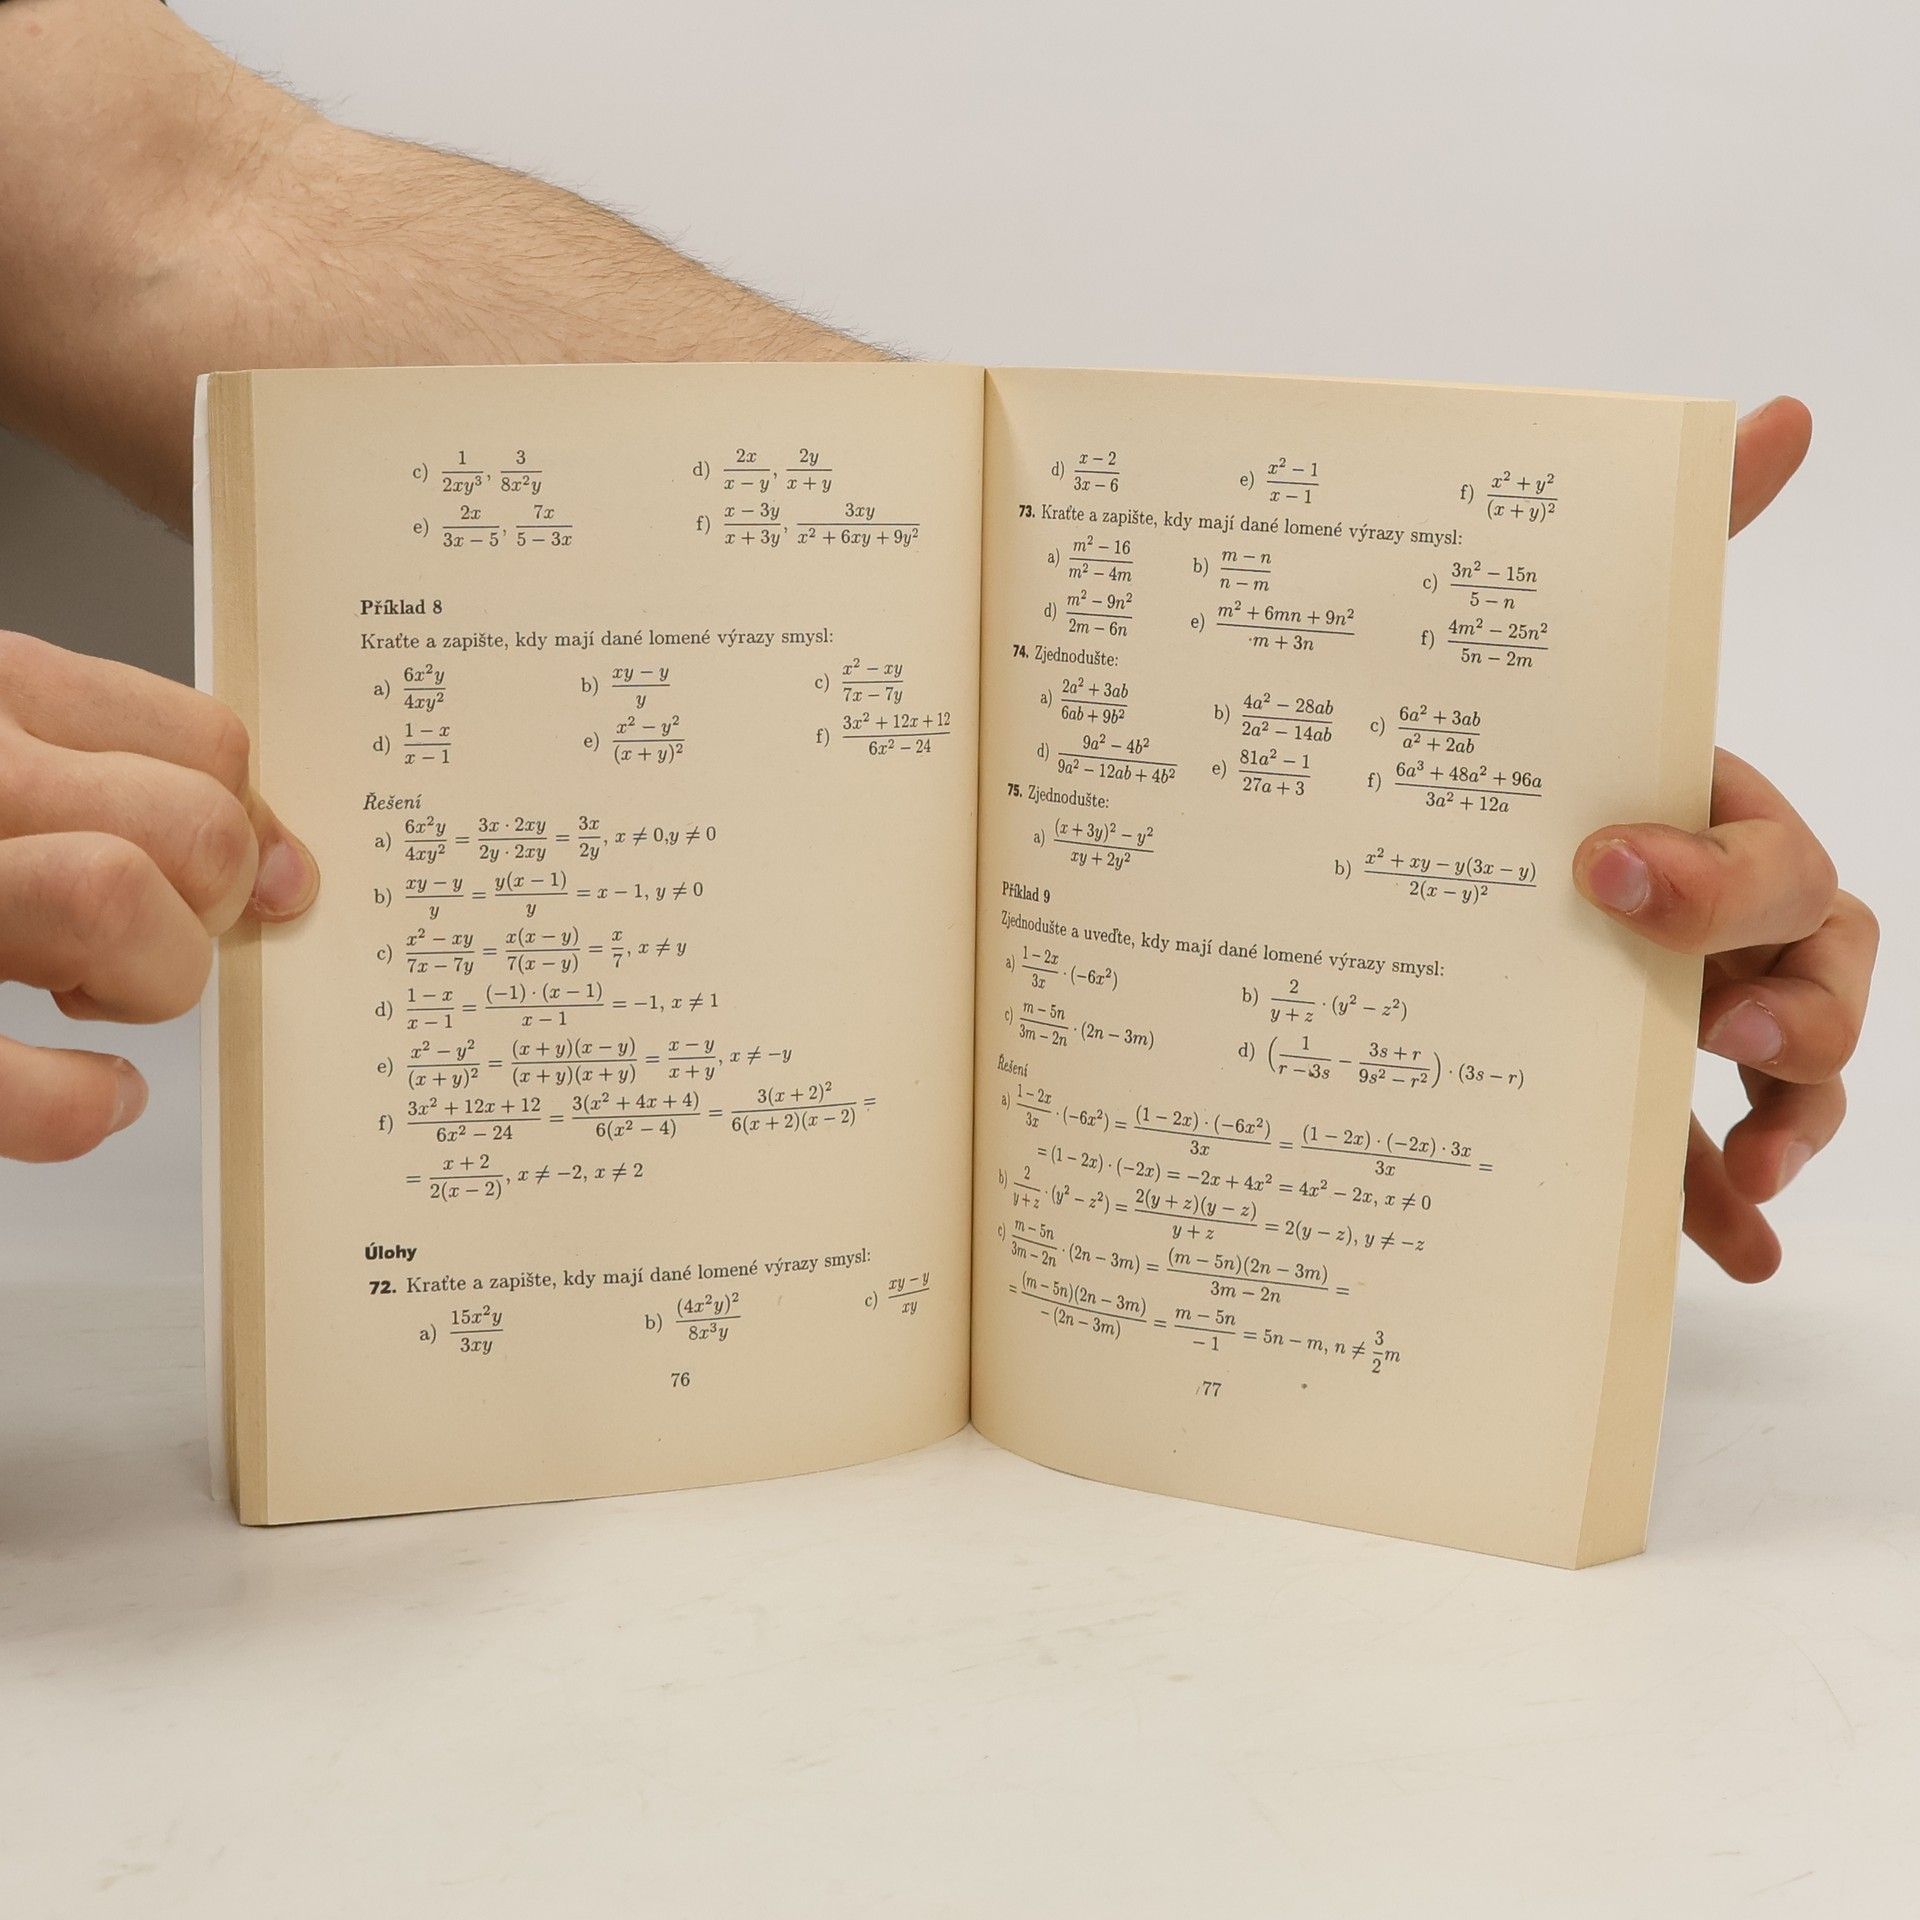 c) 1/(2xy³), 3/(8x²y) d) 2x/(x − y), 2y/(x + y)
e) 2x/(3x − 5), 7x/(5 − 3x) f) (x − 3y)/(x + 3y), 3xy/(x² + 6xy + 9y²)
Příklad 8
Kraťte a zapište, kdy mají dané lomené výrazy smysl:
a) 6x²y/4xy² b) (xy − y)/y c) (x² − xy)/(7x − 7y)
d) (1 − x)/(x − 1) e) (x² − y²)/(x + y)² f) (3x² + 12x + 12)/(6x² − 24)
Řešení
a) 6x²y/4xy² = (3x · 2xy)/(2y · 2xy) = 3x/2y, x ≠ 0,y ≠ 0
b) (xy − y)/y = y(x − 1)/y = x − 1, y ≠ 0
c) (x² − xy)/(7x − 7y) = x(x − y)/7(x − y) = x/7, x ≠ y
d) (1 − x)/(x − 1) = (−1) · (x − 1)/(x − 1) = −1, x ≠ 1
e) (x² − y²)/(x + y)² = (x + y)(x − y)/(x + y)(x + y) = (x − y)/(x + y), x ≠ −y
f) (3x² + 12x + 12)/(6x² − 24) = 3(x² + 4x + 4)/6(x² − 4) = 3(x + 2)²/6(x + 2)(x − 2) =
= (x + 2)/2(x − 2), x ≠ −2, x ≠ 2
Úlohy
72. Kraťte a zapište, kdy mají dané lomené výrazy smysl:
a) 15x²y/3xy b) (4x²y)²/8x³y c) (xy − y)/xy
76
d) (x − 2)/(3x − 6) e) (x² − 1)/(x − 1) f) (x² + y²)/(x + y)²
73. Kraťte a zapište, kdy mají dané lomené výrazy smysl:
a) (m² − 16)/(m² − 4m) b) (m − n)/(n − m) c) (3n² − 15n)/(5 − n)
d) (m² − 9n²)/(2m − 6n) e) (m² + 6mn + 9n²)/(m + 3n) f) (4m² − 25n²)/(5n − 2m)
74. Zjednodušte:
a) (2a² + 3ab)/(6ab + 9b²) b) (4a² − 28ab)/(2a² − 14ab) c) (6a² + 3ab)/(a² + 2ab)
d) (9a² − 4b²)/(9a² − 12ab + 4b²) e) (81a² − 1)/(27a + 3) f) (6a³ + 48a² + 96a)/(3a² + 12a)
75. Zjednodušte:
a) ((x + 3y)² − y²)/(xy + 2y²) b) (x² + xy − y(3x − y))/2(x − y)²
Příklad 9
Zjednodušte a uveďte, kdy mají dané lomené výrazy smysl:
a) (1 − 2x)/3x · (−6x²) b) 2/(y + z) · (y² − z²)
c) (m − 5n)/(3m − 2n) · (2n − 3m) d) (1/(r − 3s) − (3s + r)/(9s² − r²)) · (3s − r)
Řešení
a) (1 − 2x)/3x · (−6x²) = (1 − 2x) · (−6x²)/3x = (1 − 2x) · (−2x) · 3x/3x =
= (1 − 2x) · (−2x) = −2x + 4x² = 4x² − 2x, x ≠ 0
b) 2/(y + z) · (y² − z²) = 2(y + z)(y − z)/(y + z) = 2(y − z), y ≠ −z
c) (m − 5n)/(3m − 2n) · (2n − 3m) = (m − 5n)(2n − 3m)/(3m − 2n) =
= (m − 5n)(2n − 3m)/−(2n − 3m) = (m − 5n)/−1 = 5n − m, n ≠ 3/2 m
77